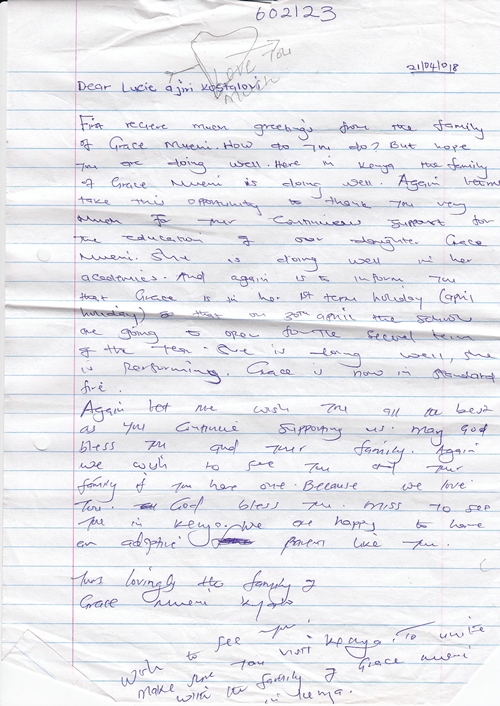 602123
Love You
Much
21/04/018
Dear Lucie a jiri
First recieve much greetings from the family
of Grace Mueni. How do you do? But hope
you are doing well. Here in Kenya the family
of Grace Mueni is doing well. Again let me
take this opportunity to thank you very
much for your continued support for
the education of our daughter Grace
Mueni. She is doing well in her
academics. And again is to inform you
that Grace is in her 1st term holiday (april
holiday) so that on 30th april the school
are going to open for the second term
of the year. She is doing well, she
is performing. Grace is now in standard
five.
Again let me wish you all the best
as you continue supporting us. May God
bless you and your family. Again
we wish to see you and your
family if you have one. Because we love
you. God bless you. Miss to see
you in Kenya. We are happy to have
an adoptive parent like you.
Yours lovingly the family of
Grace Mueni
Wish to see you.
make sure you visit Kenya. To unite
with the family of Grace Mueni
in Kenya.